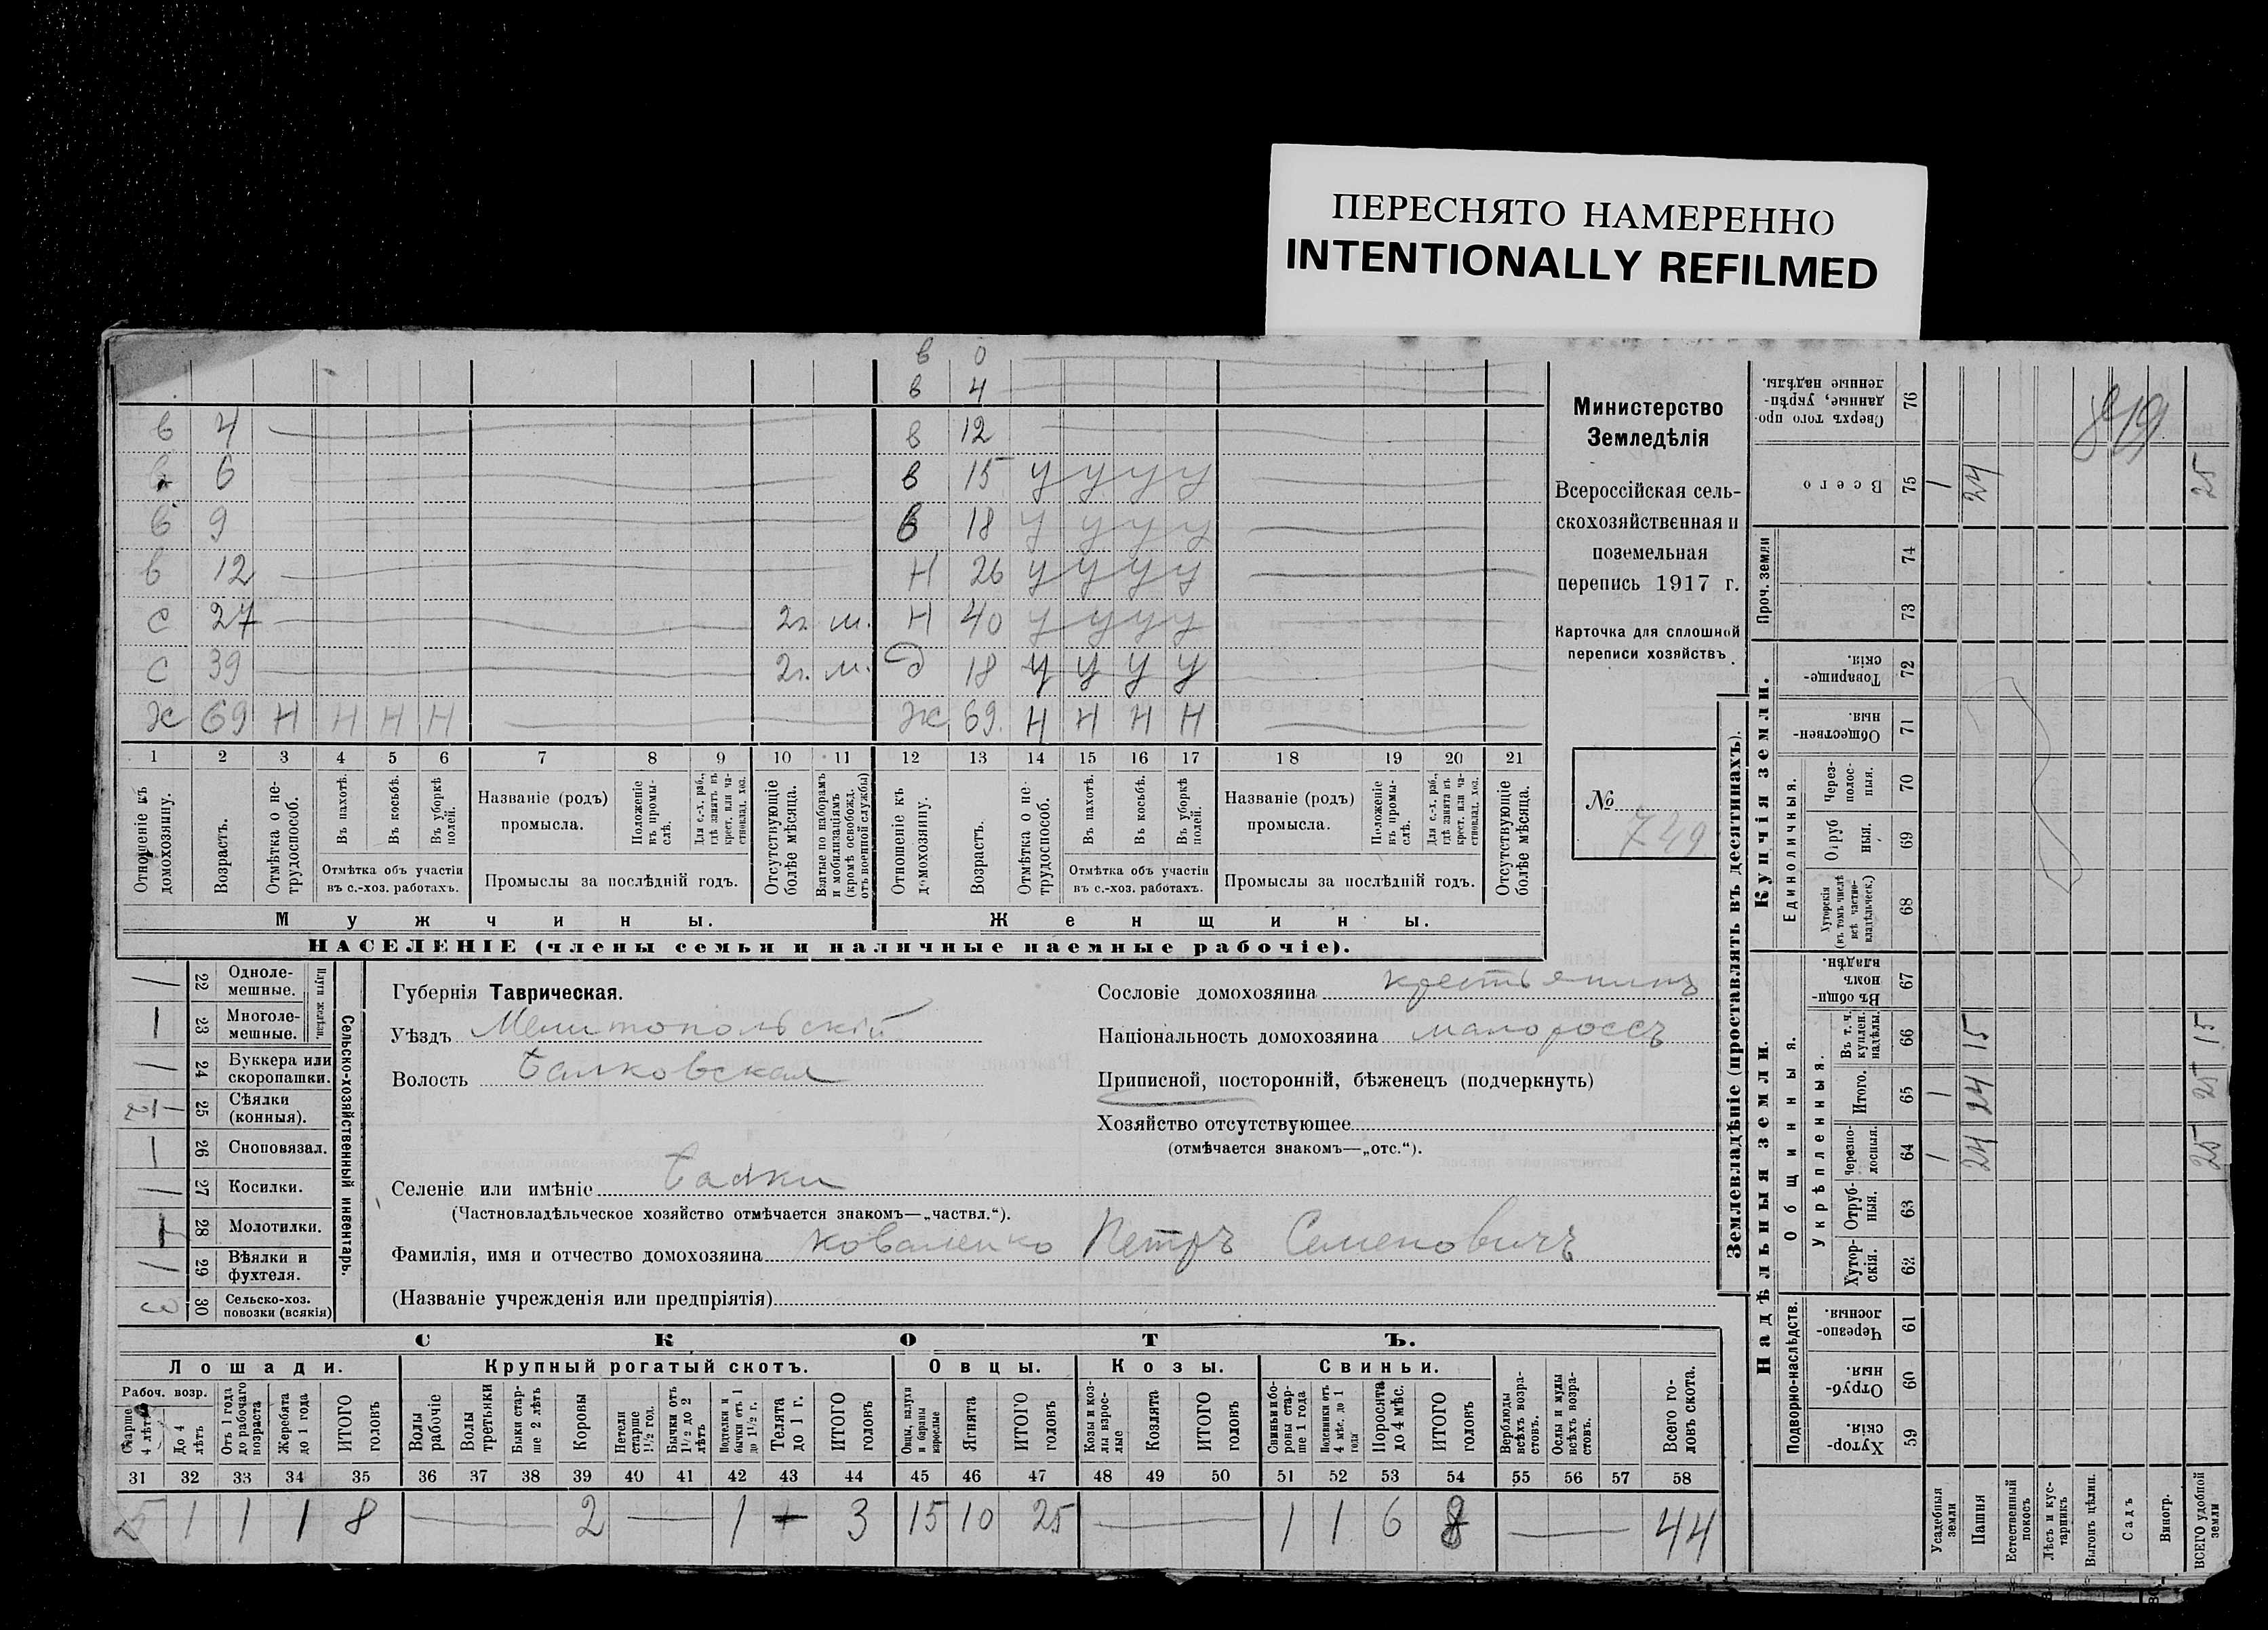 ПЕРЕСНЯТО НАМЕРЕННО
INTENTIONALLY REFILMED
в 0
в 4
в 4 в 12
6 в 15 у у у у
в 9 в 18 у у у у
в 12 Н 26 у у у у
с 27 2г. м. Н 40 у у у у
с 39 2г. м. д 18 у у у у
Ж 69 Н Н Н Н Ж 69. Н Н Н Н
1 2 3 4 5 6 7 8 9 10 11 12 13 14 15 16 17 18 19 20 21
Отношеніе къ домохозяину.
Возрастъ.
Отмѣтка о нетрудоспособ.
Въ пахотѣ.
Въ косьбѣ.
Въ уборкѣ полей.
Отмѣтка объ участіи
въ с.-хоз. работахъ.
Названіе (родъ)
промысла.
Положеніе въ промыслѣ.
Для с.-х. раб., гдѣ занятъ въ крест. или частновлад. хоз.
Промыслы за послѣдній годъ.
Отсутствующіе болѣе мѣсяца.
Взятые по наборамъ и мобилизаціямъ (кромѣ освобожд. отъ военной службы)
Отношеніе къ домохозяину.
Возрастъ.
Отмѣтка о нетрудоспособ.
Въ пахотѣ.
Въ косьбѣ.
Въ уборкѣ полей.
Отмѣтка объ участіи
въ с.-хоз. работахъ.
Названіе (родъ)
промысла.
Положеніе въ промыслѣ.
Для с.-х. раб., гдѣ занята въ крест. или частновлад. хоз.
Промыслы за послѣдній годъ.
Отсутствующіе болѣе мѣсяца.
Мужчины. Женщины.
НАСЕЛЕНІЕ (члены семьи и наличные наемные рабочіе).
Министерство
Земледѣлія
Всероссійская сель-
скохозяйственная и
поземельная
перепись 1917 г.
Карточка для сплошной
переписи хозяйствъ.
№
749
22 Одноле-
мешные.
23 Многоле-
мешные.
Плуги желѣзн.
24 Буккера или
скоропашки.
25 Сѣялки
(конныя).
26 Сноповязал.
27 Косилки.
28 Молотилки.
29 Вѣялки и
фухтеля.
3 30 Сельско-хоз.
повозки (всякія)
Сельско-хозяйственный инвентарь.
Губернія Таврическая.
Уѣздъ Мелитопольскій
Волость Балковская
Селеніе или имѣніе Балки
(Частновладѣльческое хозяйство отмѣчается знакомъ—„частвл.“).
Фамилія, имя и отчество домохозяина Коваленко Петръ Семеновичъ
(Названіе учрежденія или предпріятія)
Сословіе домохозяина крестьянинъ
Національность домохозяина малороссъ
Приписной, посторонній, бѣженецъ (подчеркнуть)
Хозяйство отсутствующее
(отмѣчается знакомъ—„отс.“).
СКОТЪ.
Лошади. Крупный рогатый скотъ. Овцы. Козы. Свиньи.
Рабоч. возр.
Старше 4 лѣтъ
До 4 лѣтъ
Отъ 1 года до рабочаго возраста
Жеребята до 1 года
ИТОГО головъ
Волы рабочіе
Волы третьяки
Быки старше 2 лѣтъ
Коровы
Нетели старше 1½ год.
Бычки отъ 1½ до 2 лѣтъ
Подтелки и бычки отъ 1 до 1½ г.
Телята до 1 г.
ИТОГО головъ
Овцы, валухи и бараны взрослые
Ягнята
ИТОГО головъ
Козы и козлы взрослые
Козлята
ИТОГО головъ
Свиньи боровы старше 1 года
Подсвинки отъ 4 мѣс. до 1 года
Поросята до 4 мѣс.
ИТОГО головъ
Верблюды всѣхъ возрастовъ.
Ослы и мулы всѣхъ возрастовъ.
Всего головъ скота.
31 32 33 34 35 36 37 38 39 40 41 42 43 44 45 46 47 48 49 50 51 52 53 54 55 56 57 58
5 1 1 1 8 2 1 3 15 10 25 1 1 6 8 44
Землевладѣніе (проставлять въ десятинахъ).
Надѣльныя земли. Купчія земли. Проч. земли
Подворно-наслѣдств.
Общинныя.
Укрѣпленныя.
Единоличныя.
76 Сверхъ того проданные, укрѣпленные надѣлы.
75 Всего 1 24 25
819
74
73
72 Товарищескія.
71 Общественныя.
70 Черезполосныя.
69 Отрубныя.
68 Хуторскія (въ томъ числѣ всѣ частновладѣльческ.)
67 Въ общинномъ владѣн.
66 Въ т. ч. куплен. надѣлы. 15 15
65 Итого. 1 24 25
64 Черезполосныя. 1 24 25
63 Отрубныя.
62 Хуторскія.
61 Черезполосныя.
60 Отрубныя.
59 Хуторскія.
Усадебныя земли
Пашня
Естественный покосъ
Лѣсъ и кустарникъ
Выгонъ цѣлин.
Садъ
Виногр.
ВСЕГО удобной земли